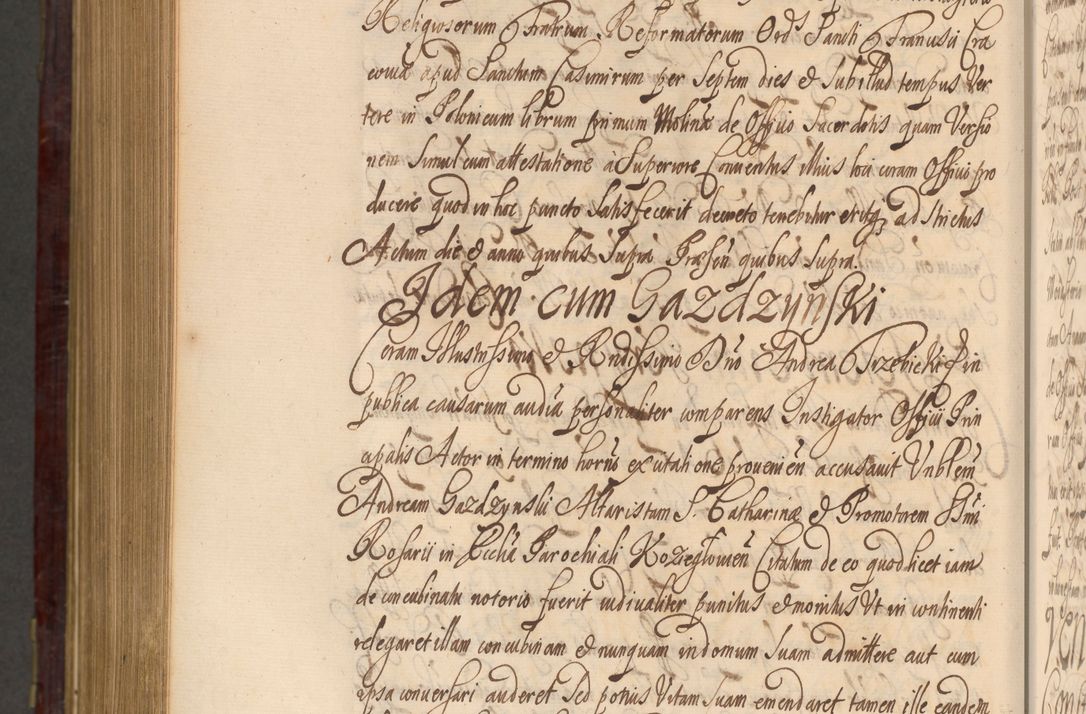 Religiosorum Fratrum Reformatorum Ords Sancti Francisci Cra
coviæ apud Sanctum Casimirum per Septem dies et Sub illud tempus Ver
tere in Polonicum librum primum Molinæ de Officio Sacerdotis quam Versio
nem Simul cum attestatione a Superiore Conventus illius loci coram Officio pro
ducere quod in hoc puncto Satisfecerit decreto tenebitur eritq adstrictus
Actum die et anno quibus Supra Præsen quibus Supra.
Idem cum Gazdzynski
Coram Illustrissimo et Rndissimo Dno Andrea Trzebicki in
publica causarum audia personaliter comparens Instigator Officii Prin
cipalis Actor in termino horno ex citatione provenien accusavit Vnblem
Andream Gazdzynski Altaristam S. Catharinæ et Promotorem SSmi
Rosarii in Ecclia Parochiali Koziegloven Citatum de eo quod licet iam
de concubinatu notorio fuerit iudicialiter punitus et monitus Vt in continenti
relegaret illam concubinam et nunquam in domum Suam admittere aut cum
ipsa conversari auderet Sed potius Vitam Suam emendaret tamen ille eandem